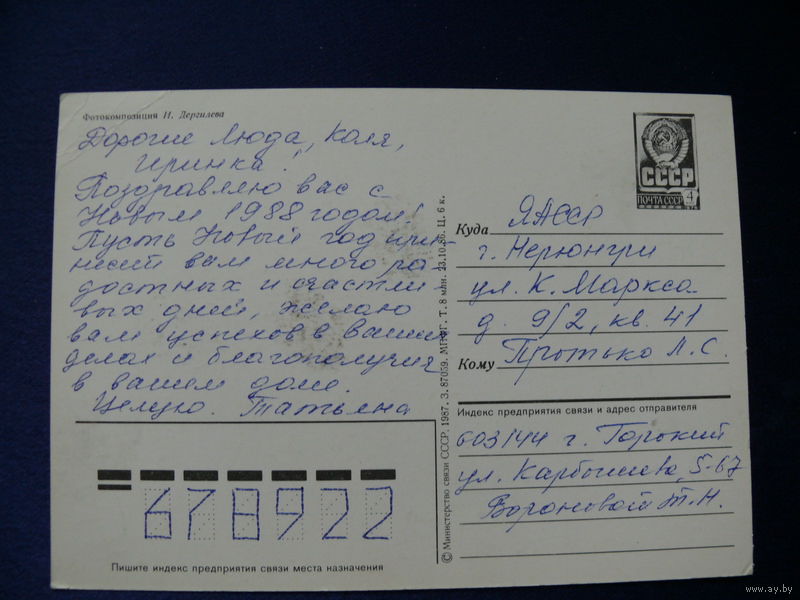 Фотокомпозиция И. Дергилева
Дорогие Люда, Коля,
Иринка!
Поздравляю вас с
Новым 1988 годом!
Пусть Новый год при-
несёт вам много ра-
достных и счастли-
вых дней, желаю
вам успехов в ваших
делах и благополучия
в вашем доме.
Целую. Татьяна
678922
Пишите индекс предприятия связи места назначения
© Министерство связи СССР. 1987. З. 87059. МПФГ. Т. 8 млн. 23.10.86. Ц. 6 к.
СССР
ПОЧТА СССР 4
Куда ЯАССР
г. Нерюнгри
ул. К. Маркса
д. 9/2, кв. 41
Кому Протько Л. С.
Индекс предприятия связи и адрес отправителя
603144 г. Горький
ул. Карбышева, 5-67
Вороновой Т. Н.
www.ay.by